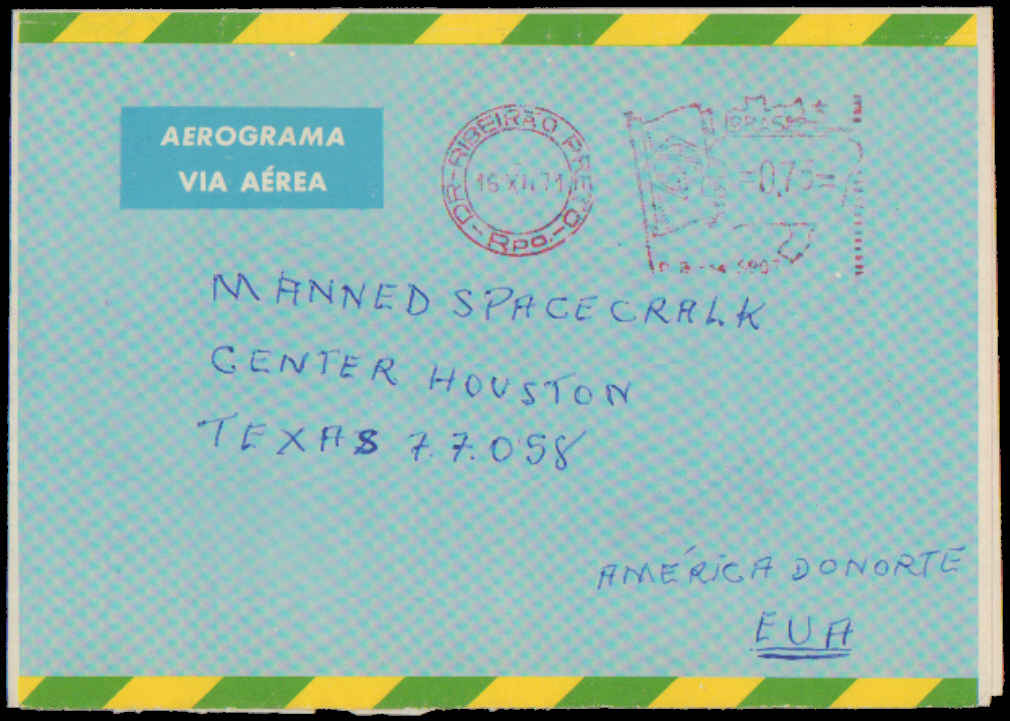 AEROGRAMA
VIA AÉREA
DR-RIBEIRÃO PRETO
16 XII 71
- Rpo. -
BRASIL
=0,75=
MANNED SPACECRALK
CENTER HOUSTON
TEXAS 77.058
AMÉRICA DO NORTE
EUA